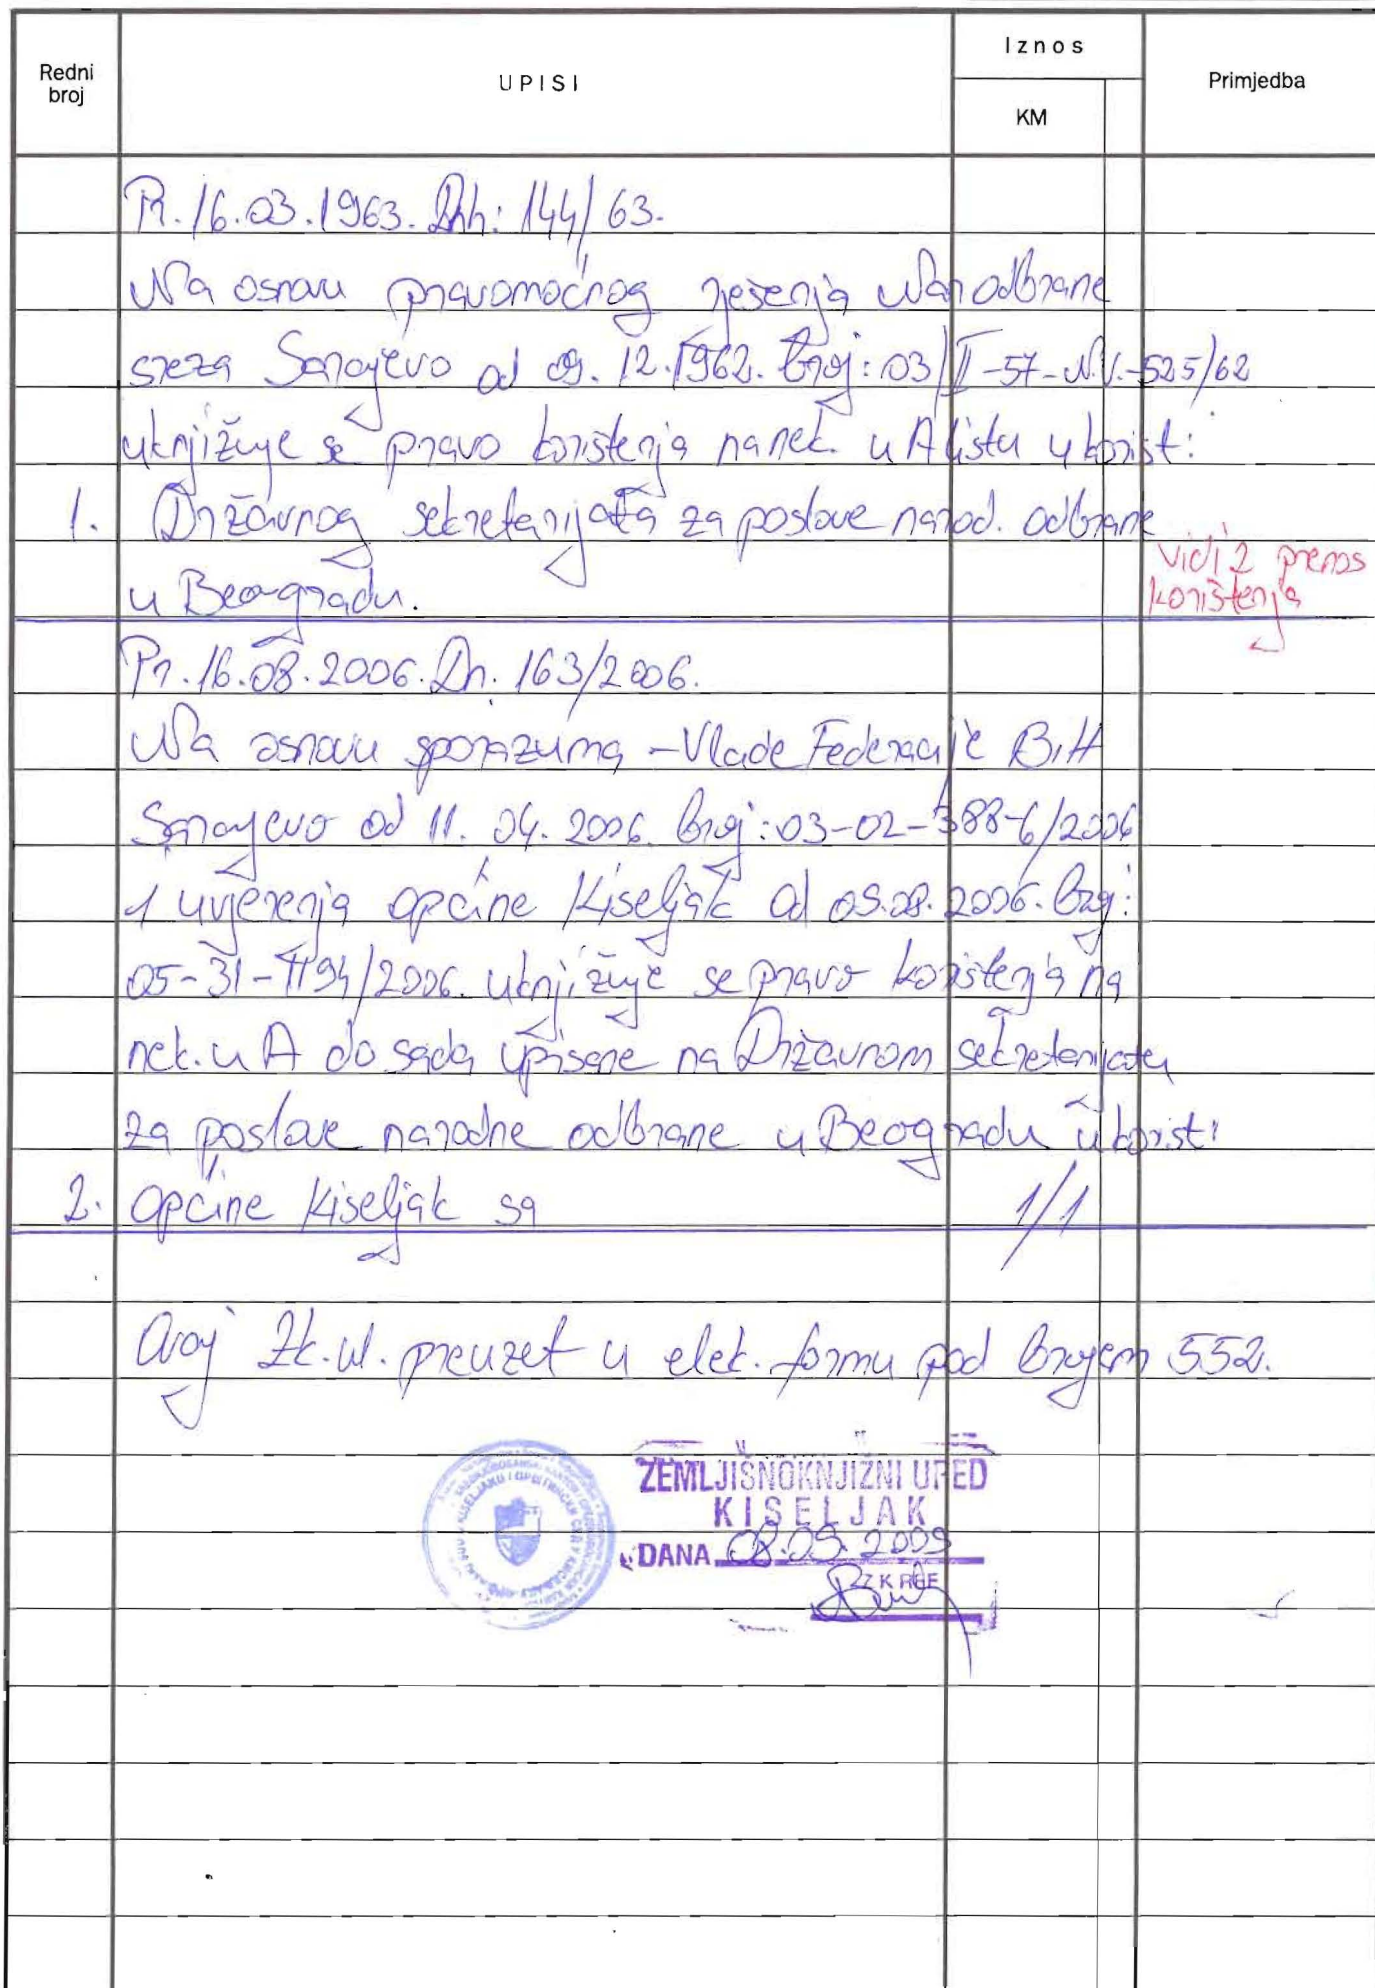 Redni
broj
UPISI
Iznos
KM
Primjedba
Pr. 16.03.1963. Dnh: 144/63.
Na osnovu pravomoćnog rješenja Nar odbrane
sreza Sarajevo od 09.12.1962. broj: 03/II-57-N.V.-525/62
uknjižuje se pravo korištenja na nek. u A listu u korist:
1. Državnog sekretarijata za poslove narod. odbrane
u Beogradu.
vidi 2 prenos
korištenja
Pr. 16.08.2006. Dn. 163/2006.
Na osnovu sporazuma - Vlade Federacije BiH
Sarajevo od 11. 04. 2006. broj: 03-02-388-6/2006
i uvjerenja općine Kiseljak od 09.08.2006. broj:
05-31-1194/2006. uknjižuje se pravo korištenja na
nek. u A do sada upisane na Državnom sekretarijatu
za poslove narodne odbrane u Beogradu u korist:
2. Općine Kiseljak sa 1/1
Ovaj Zk. ul. preuzet u elek. formu pod brojem 552.
ZEMLJIŠNOKNJIŽNI URED
KISELJAK
DANA 08.09.2009
ZK REF